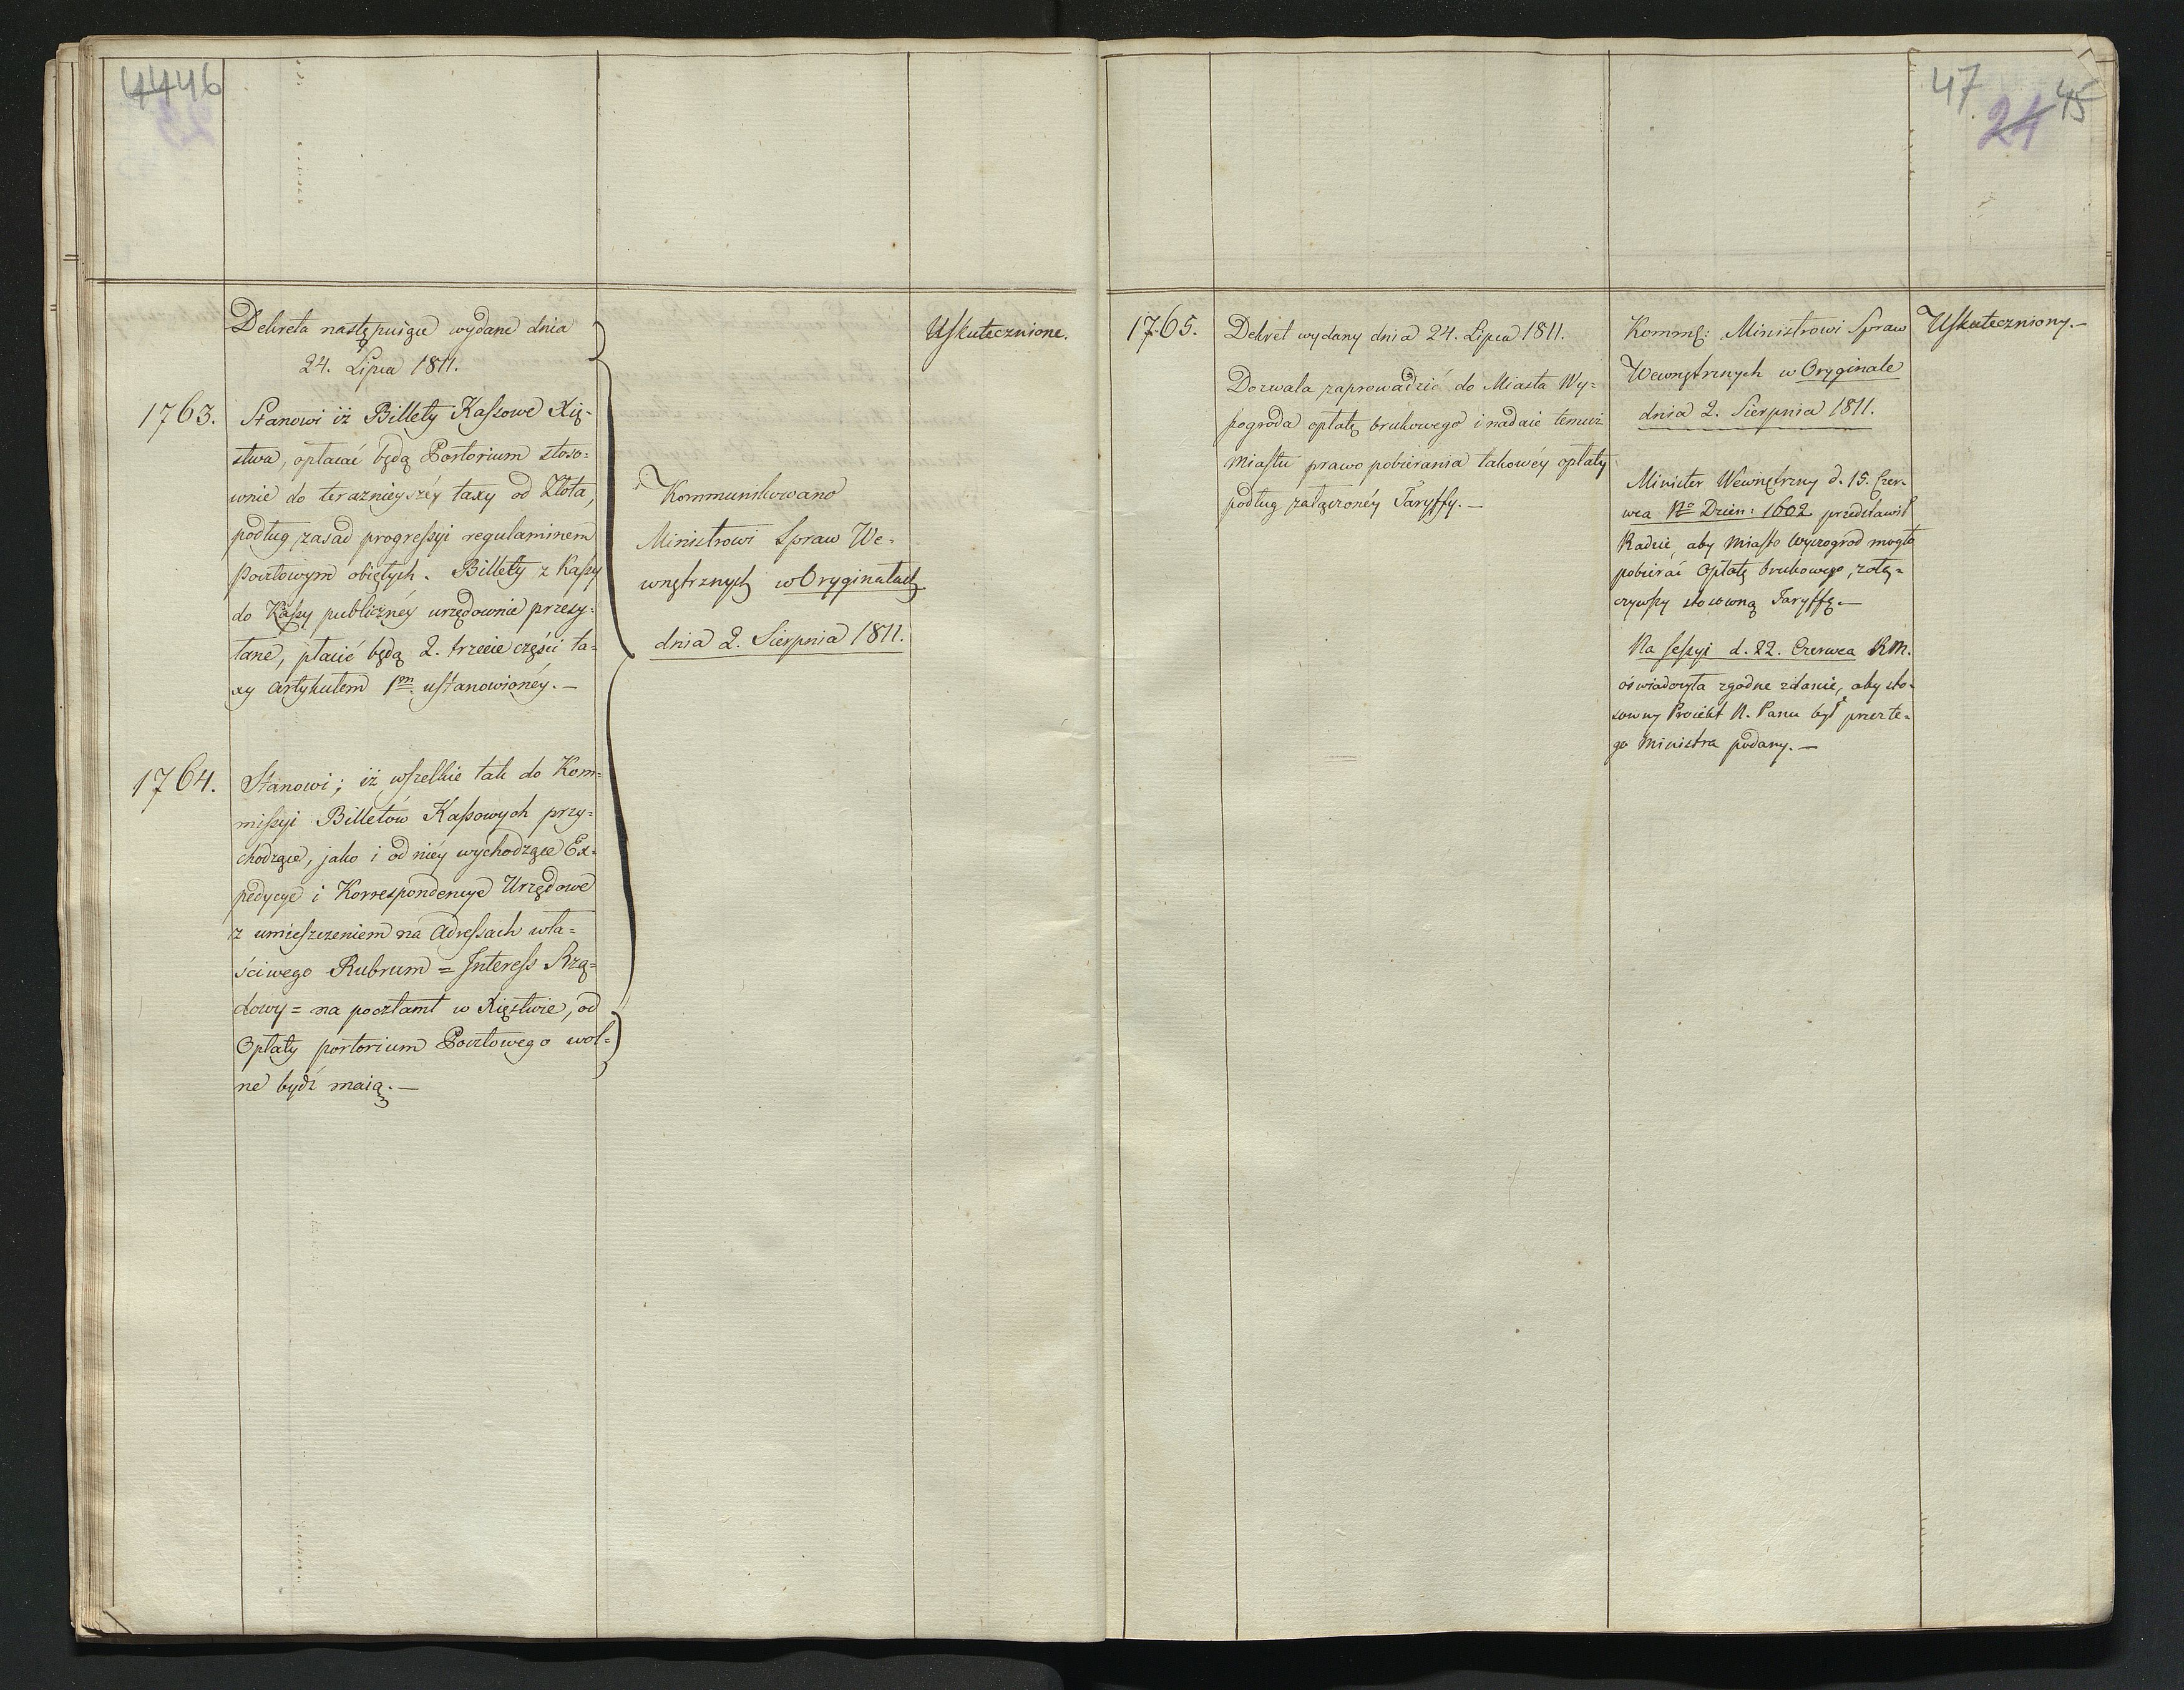 44 46
Dekreta następuiące wydane dnia
24. Lipca 1811.
1763. Stanowi iż Billety Kassowe Xię-
stwa, opłacać będą Portorium stoso-
wnie do teraznieyszéy taxy od Złota,
podług zasad progressyi regulaminem
Pocztowym obiętych. Billety z Kassy
do Kassy publicznéy urzędownie przesy-
łane, płacić będą 2. trzecie części ta-
xy artykułem 1m. ustanowionéy.—
1764. Stanowi; iż wszelkie tak do Kom-
missyi Billetów Kassowych przy-
chodzące, jako i od niéy wychodzące Ex-
pedycye i Korrespondencye Urzędowe
z umieszczeniem na Adressach wła-
ściwego Rubrum = Interess Rzą-
dowy = na pocztamt w Xięstwie, od
Opłaty portorium Pocztowego wol-
ne bydź maią.—
Kommunikowano
Ministrowi Spraw We-
wnętrznych w Oryginałach
dnia 2. Sierpnia 1811.
Uskutecznione.
47 24 45
1765. Dekret wydany dnia 24. Lipca 1811.
Dozwala zaprowadzić do Miasta Wy-
pogroda opłatę brukowego i nadaie temuż
Miastu prawo pobierania takowéy opłaty
podług załączonéy Taryffy.—
Kommk: Ministrowi Spraw
Wewnętrznych w Oryginale
dnia 2. Sierpnia 1811.
Minister Wewnętrzny d. 15. Czer-
wca No Dzien: 1602 przedstawił
Radzie, aby Miasto Wyszogrod mogło
pobierać Opłatę brukowego, załą-
czywszy stosowną Taryffę.—
Na sessyi d. 22. Czerwca RM.
oświadczyła zgodne zdanie, aby sto-
sowny Proiekt N. Panu był przez te-
go Ministra podany.—
Uskuteczniony.—